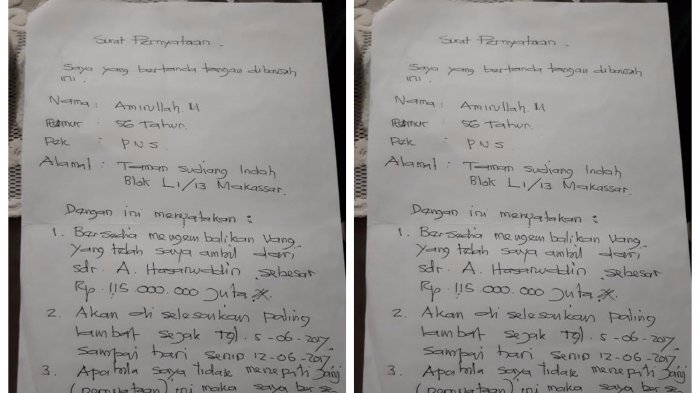 Surat Pernyataan.
Saya yang bertanda tangan dibawah
ini :
Nama : Amirullah. M
Umur : 56 Tahun.
Pek : PNS.
Alamat : Taman Sudiang Indah
Blok L1/13 Makassar.
Dengan ini menyatakan :
1. Bersedia mengembalikan Uang
yang telah saya ambil dari
sdr. A. Hasanuddin sebesar
Rp. 115.000.000 Juta
2. Akan di selesaikan paling
lambat sejak Tgl. 5-06-2017.
Sampai hari Senin 12-06-2017.
3. Apabila saya tidak menepati Janji
(pernyataan) ini maka saya berse
Surat Pernyataan.
Saya yang bertanda tangan dibawah
ini :
Nama : Amirullah. M
Umur : 56 Tahun.
Pek : PNS.
Alamat : Taman Sudiang Indah
Blok L1/13 Makassar.
Dengan ini menyatakan :
1. Bersedia mengembalikan Uang
yang telah saya ambil dari
sdr. A. Hasanuddin sebesar
Rp. 115.000.000 Juta
2. Akan di selesaikan paling
lambat sejak Tgl. 5-06-2017.
Sampai hari Senin 12-06-2017.
3. Apabila saya tidak menepati Janji
(pernyataan) ini maka saya berse